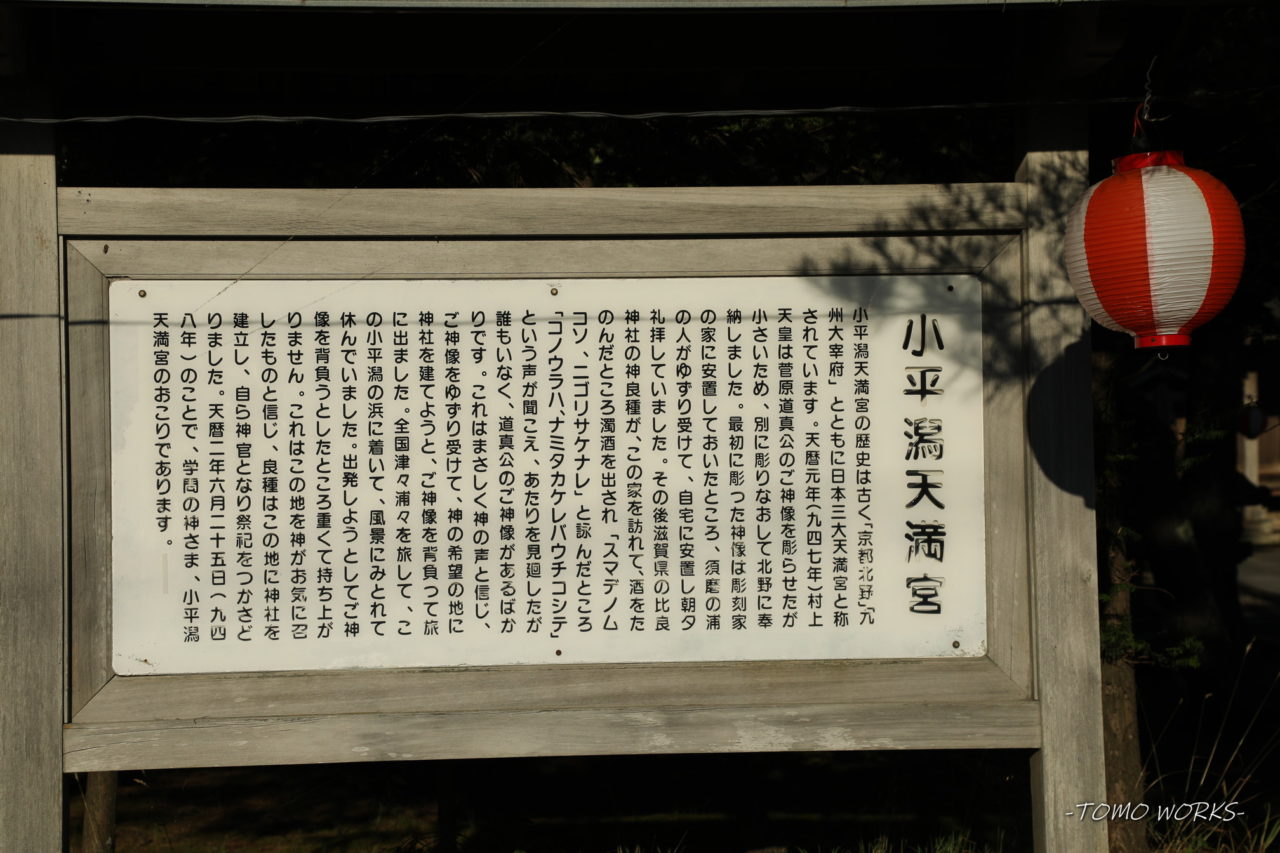 小平潟天満宮
小平潟天満宮の歴史は古く「京都北野」「九
州大宰府」とともに日本三大天満宮と称
されています。天暦元年(九四七年)村上
天皇は菅原道真公のご神像を彫らせたが
小さいため、別に彫りなおして北野に奉
納しました。最初に彫った神像は彫刻家
の家に安置しておいたところ、須磨の浦
の人がゆずり受けて、自宅に安置し朝夕
礼拝していました。その後滋賀県の比良
神社の神良種が、この家を訪れて、酒をた
のんだところ濁酒を出され「スマデノム
コソ、ニゴリサケナレ」と詠んだところ
「コノウラハ、ナミタカケレバウチコシテ」
という声が聞こえ、あたりを見廻したが
誰もいなく、道真公のご神像があるばか
りです。これはまさしく神の声と信じ、
ご神像をゆずり受けて、神の希望の地に
神社を建てようと、ご神像を背負って旅
に出ました。全国津々浦々を旅して、こ
の小平潟の浜に着いて、風景にみとれて
休んでいました。出発しようとしてご神
像を背負うとしたところ重くて持ち上が
りません。これはこの地を神がお気に召
したものと信じ、良種はこの地に神社を
建立し、自ら神官となり祭祀をつかさど
りました。天暦二年六月二十五日(九四
八年)のことで、学問の神さま、小平潟
天満宮のおこりであります。
-TOMO WORKS-